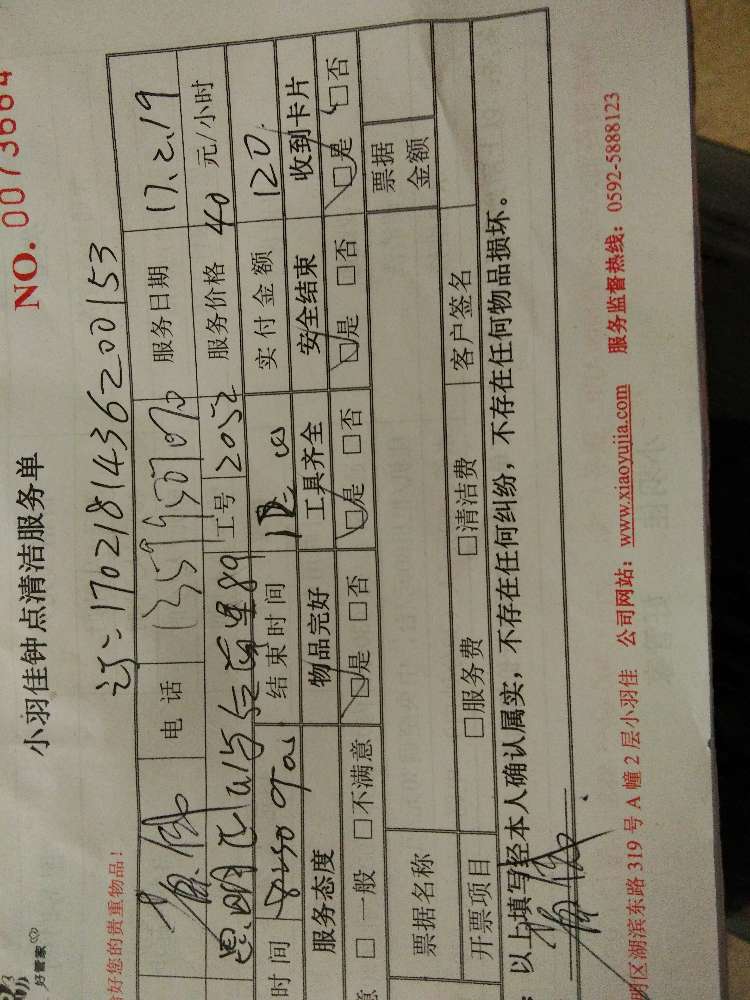 小羽佳钟点清洁服务单 NO. 0073664
好管家
好您的贵重物品！
订：170218143620 0153
电话 服务日期 17.2.19
思明区 89 工号 2052 服务价格 40 元/小时
时间 8:30 结束时间 实付金额 120
服务态度 物品完好 工具齐全 安全结束 收到卡片
□一般 □不满意 □是 □否 □是 □否 □是 □否 □是 □否
票据名称 票据金额
开票项目 □服务费 □清洁费 客户签名
：以上填写经本人确认属实，不存在任何纠纷，不存在任何物品损坏。
明区湖滨东路 319 号 A 幢 2 层小羽佳 公司网站：www.xiaoyujia.com 服务监督热线：0592-5888123